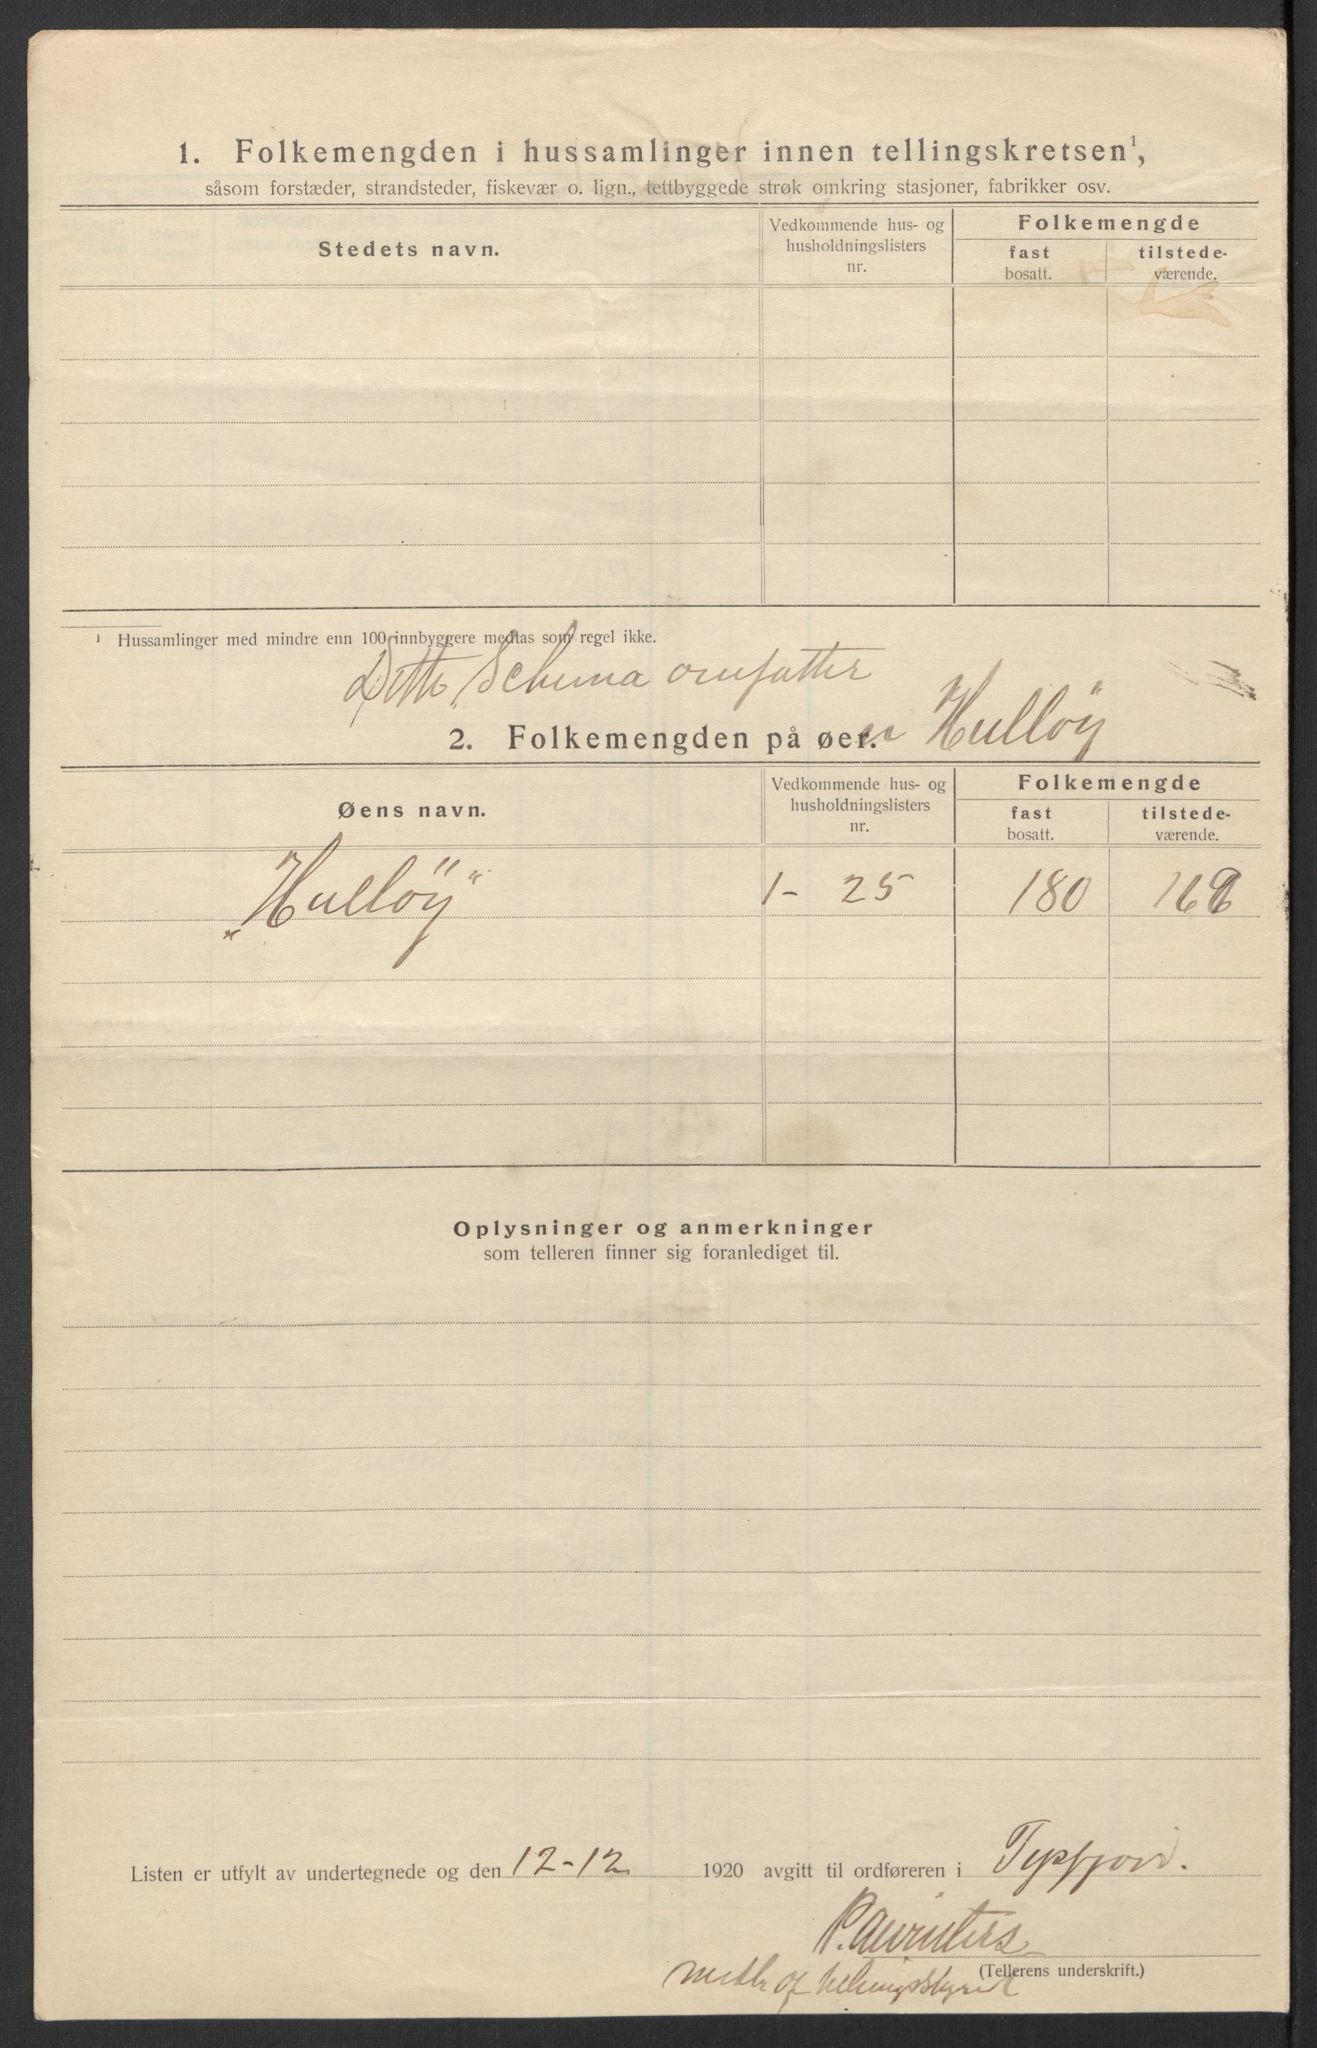 1. Folkemengden i hussamlinger innen tellingskretsen¹,
såsom forstæder, strandsteder, fiskevær o. lign., tettbyggede strøk omkring stasjoner, fabrikker osv.
Stedets navn.
Vedkommende hus- og husholdningslisters nr.
Folkemengde
fast bosatt.
tilstede-værende.
¹ Hussamlinger med mindre enn 100 innbyggere medtas som regel ikke.
Dette Schema omfatter
Hulløy
2. Folkemengden på øer.
Øens navn.
Vedkommende hus- og husholdningslisters nr.
Folkemengde
fast bosatt.
tilstede-værende.
"Hulløy" 1- 25 180
Oplysninger og anmerkninger
som telleren finner sig foranlediget til.
Listen er utfylt av undertegnede og den 12-12 1920 avgitt til ordføreren i Tysfjord.
(Tellerens underskrift.)